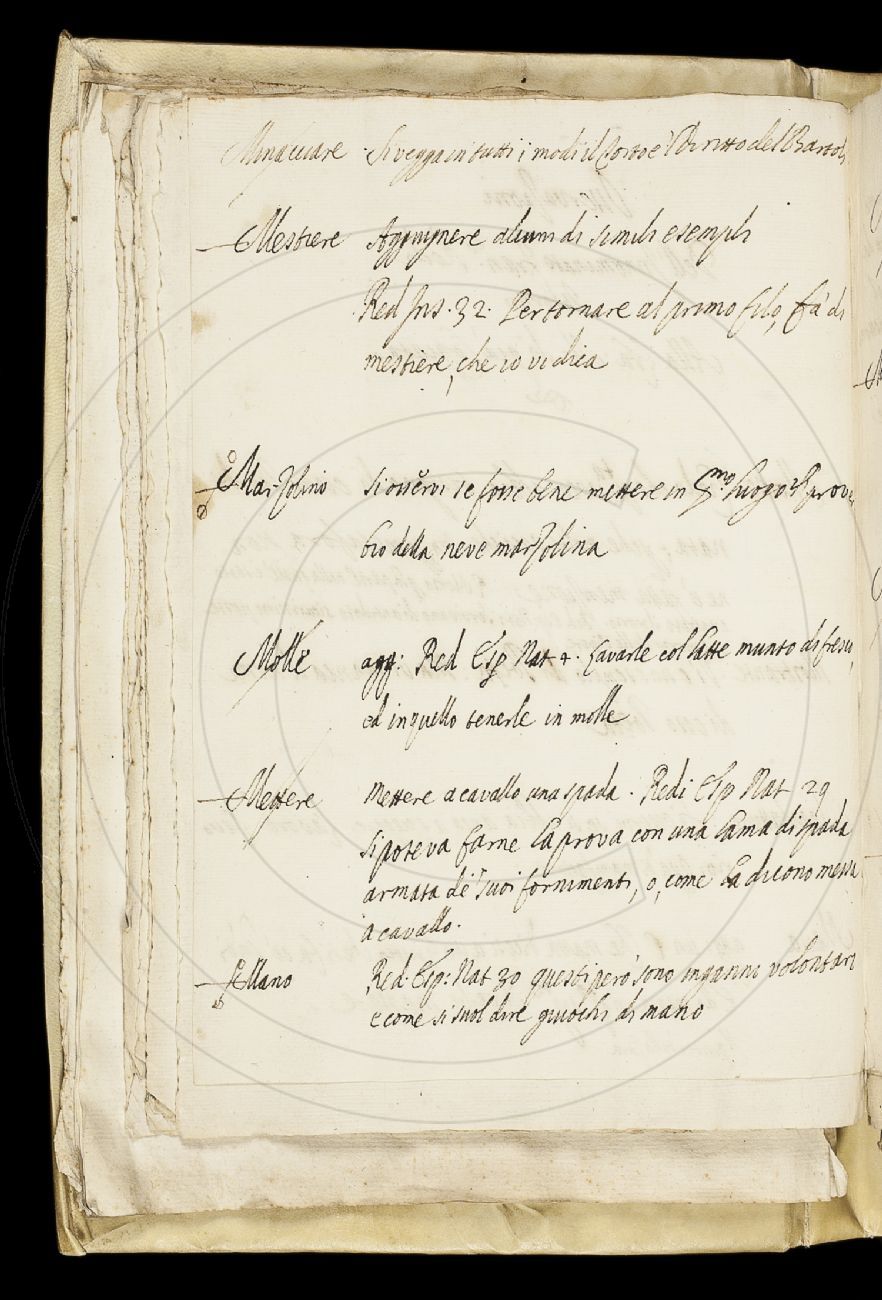 Minacciare Si vegga in tutti i modi il Torto e 'l Diritto del Bartoli
Mestiere Aggiugnere alcuni di simili esempli
Red Ins. 32. Per tornare al primo filo, fa di
mestiere, che io vi dica
Marzolino Si osservi se fosse bene mettere in luogo prover
bio della neve marzolina
Molle agg: Red Esp Nat 4. Cavarle col latte munto di fresco,
ed in quello tenerle in molle
Mettere Mettere a cavallo una spada. Redi Esp Nat 29
si poteva farne la prova con una lama di spada
armata de' suoi fornimenti, o, come la dicono messa
a cavallo.
Mano Red. Esp: Nat 30 questi però sono inganni volontari
e come si suol dire giuochi di mano